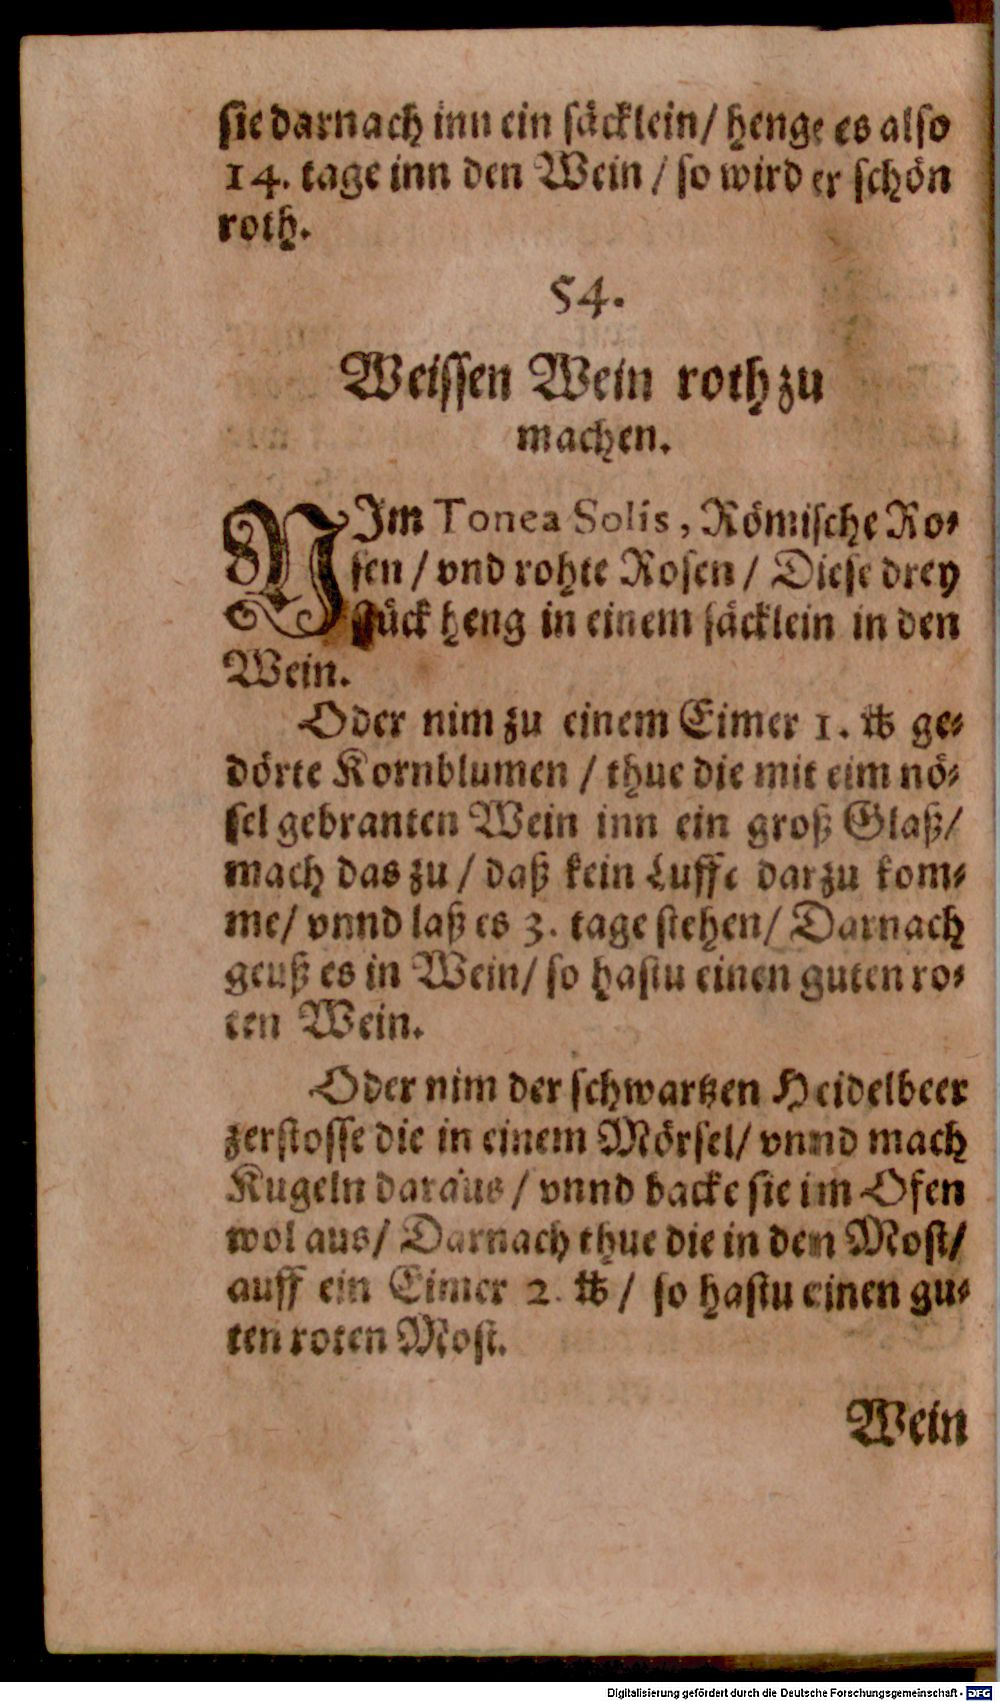 sie darnach inn ein säcklein/ henge es also
14. tage inn den Wein / so wird er schön
roth.
54.
Weissen Wein roth zu
machen.
NIm Tonea Solis, Römische Ro⸗
sen / vnd rohte Rosen / Diese drey
stück heng in einem säcklein in den
Wein.
Oder nim zu einem Eimer 1. ℔ ge⸗
dörte Kornblumen / thue die mit eim nö⸗
sel gebranten Wein inn ein groß Glaß/
mach das zu / daß kein Lufft darzu kom⸗
me/ vnnd laß es 3. tage stehen/ Darnach
geuß es in Wein/ so hastu einen guten ro⸗
ten Wein.
Oder nim der schwartzen Heidelbeer
zerstosse die in einem Mörsel/ vnnd mach
Kugeln daraus / vnnd backe sie im Ofen
wol aus/ Darnach thue die in den Most/
auff ein Eimer 2. ℔ / so hastu einen gu⸗
ten roten Most.
Wein
Digitalisierung gefördert durch die Deutsche Forschungsgemeinschaft - DFG